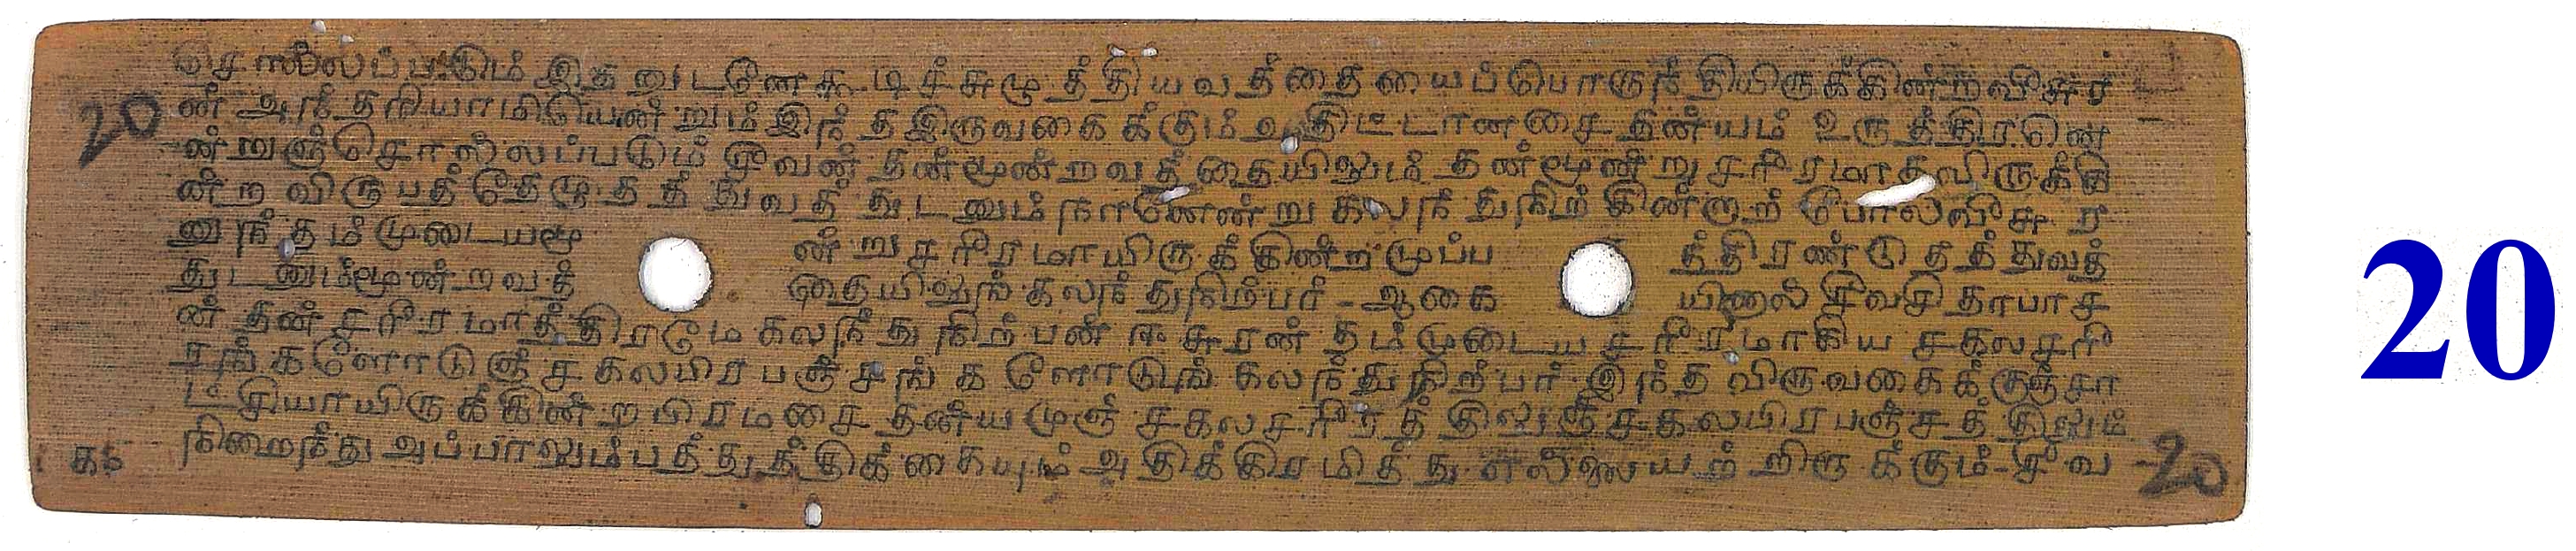 சொல்லப்படும் இதனுடனேகூடிச் சுழுத்தியவத்தையைப்பொருந்தியிருக்கின்றவீசுர
20 ன் அந்தரியாமியென்றும் இந்த இருவகைக்கும் திட்டானசைதன்யம் உருத்திரனெ
ன்றுஞ்சொல்லப்படும் சீவன் தன்மூன்றவத்தையிலும் தன்மூன்று சரீரமாகவிருக்கி
ன்ற விருபத்தேழு தத்துவத்துடனும் நானென்று கலந்துநிற்கின்றாற் போலவீசுர
னுந் தம்முடையமூன்று சரீரமாயிருக்கின்ற முப்பத்திரண்டு தத்துவத்
துடனும்மூன்றவத்தையிலுங் கலந்துநிற்பர் - ஆகையினால் சீவசிதாபாச
ன் தன் சரீரமாத்திரமே கலந்து நிற்பன் ஈசுரன் தம்முடைய சரீரமாகிய சகலசரீ
ரங்களோடுஞ் சகலபிரபஞ்சங்களோடுங் கலந்துநிற்பர் இந்த விருவகைக்குஞ்சா
ட்சியாயிருக்கின்ற பிரமசைதன்யமுஞ் சகலசரீரத்திலுஞ்சகலபிரபஞ்சத்திலும்
நிறைந்து அப்பாலும்பத்துத்திக்கையும் அதிக்கிரமித்து எல்லையற்றிருக்கும் - சீவ 20
20